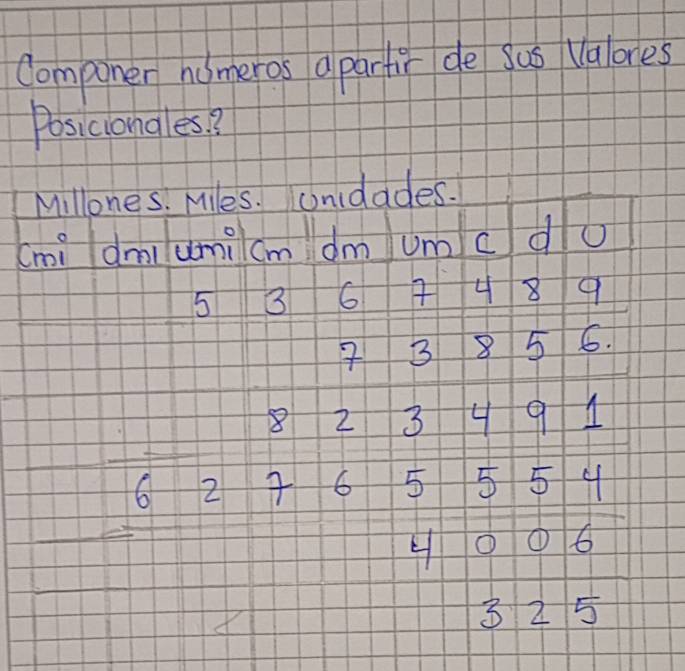 Componer números apartir de sus Valores
Posicionales.?
Millones. Miles. Unidades.
cmi dmi umi cm dm um c d U
5 3 6 7 4 8 9
7 3 8 5 6.
8 2 3 4 9 1
6 2 7 6 5 5 5 4
4 0 0 6
3 2 5